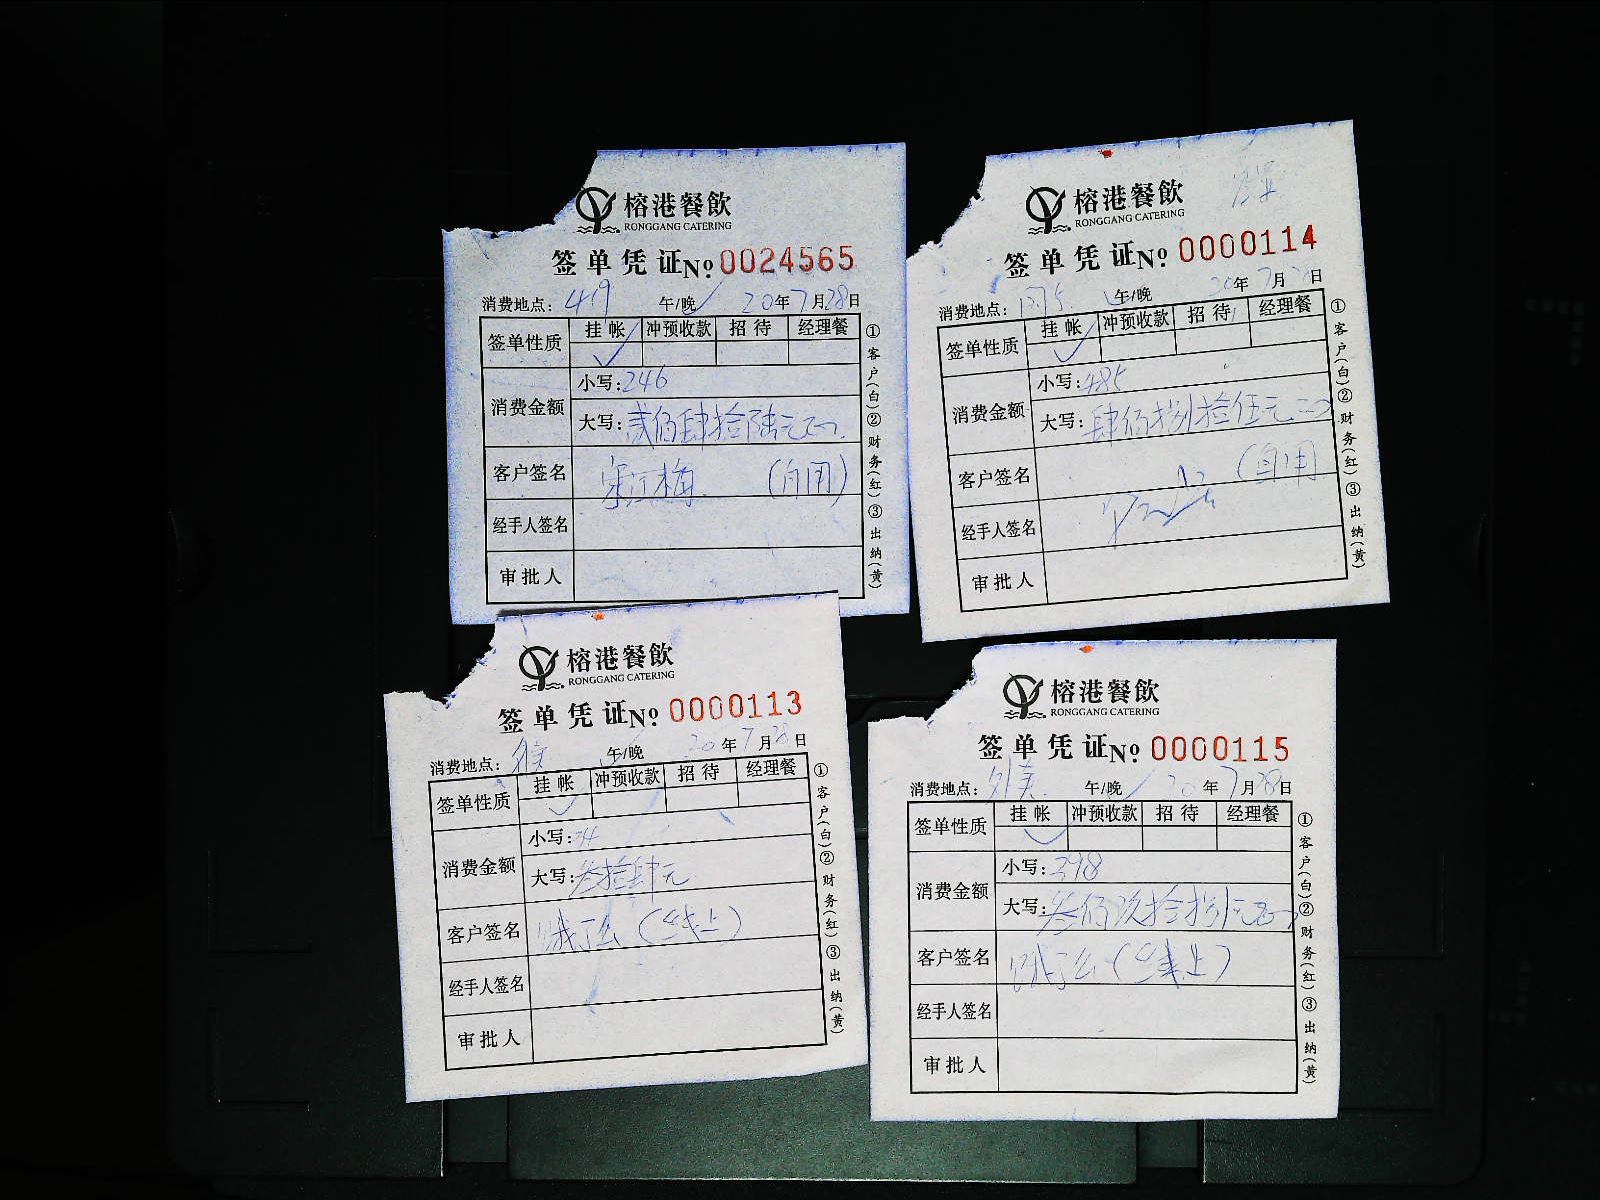 榕港餐飲
RONGGANG CATERING
签单凭证No 0024565
消费地点: 419 午/晚 20年7月28日
签单性质 挂帐 冲预收款 招待 经理餐
消费金额 小写:246
大写:贰佰肆拾陆元
客户签名 (自用)
经手人签名
审批人
①客户(白)②财务(红)③出纳(黄)
榕港餐飲
RONGGANG CATERING
签单凭证No 0000114
消费地点: 午/晚 20年7月 日
签单性质 挂帐 冲预收款 招待 经理餐
消费金额 小写:485
大写:肆佰捌拾伍元
客户签名 (自用)
经手人签名
审批人
①客户(白)②财务(红)③出纳(黄)
榕港餐飲
RONGGANG CATERING
签单凭证No 0000113
消费地点: 午/晚 20年7月28日
签单性质 挂帐 冲预收款 招待 经理餐
消费金额 小写:34
大写:叁拾肆元
客户签名 饿了么(线上)
经手人签名
审批人
①客户(白)②财务(红)③出纳(黄)
榕港餐飲
RONGGANG CATERING
签单凭证No 0000115
消费地点: 外卖 午/晚 20年7月28日
签单性质 挂帐 冲预收款 招待 经理餐
消费金额 小写:398
大写:叁佰玖拾捌元
客户签名 饿了么(线上)
经手人签名
审批人
①客户(白)②财务(红)③出纳(黄)